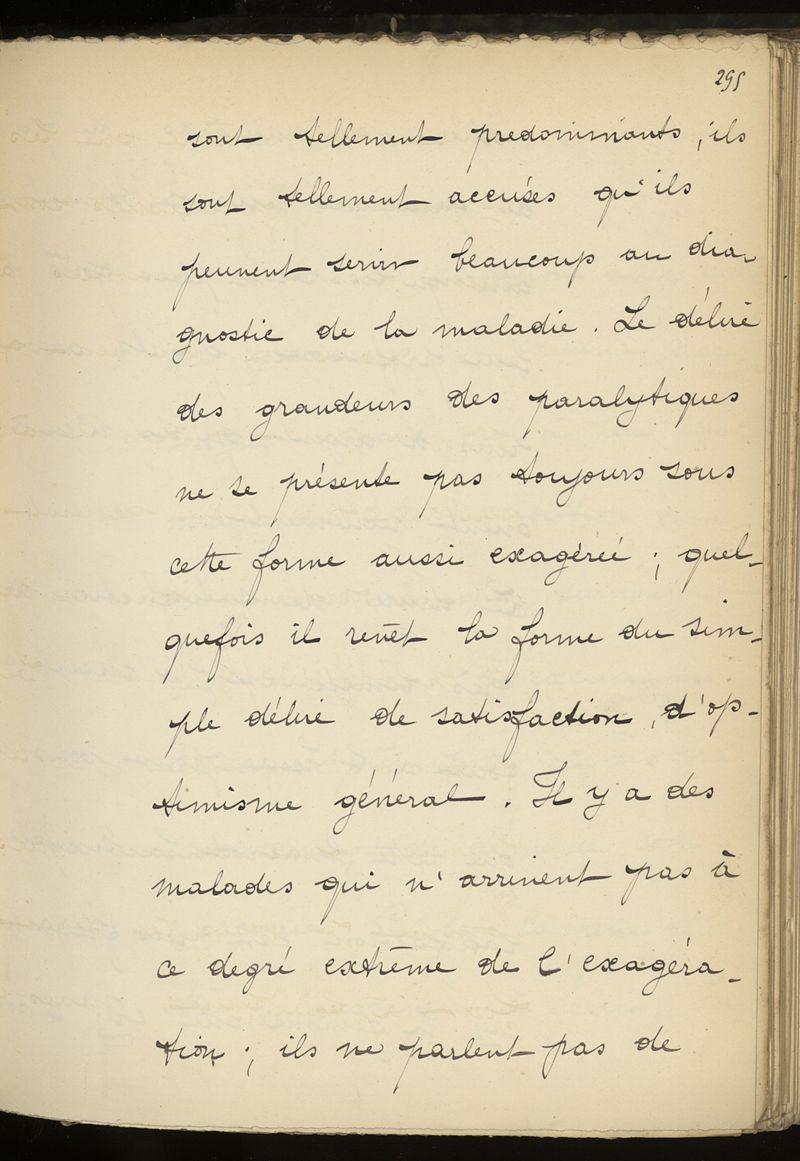 295
sont tellement predominants, ils
sont tellement accusés qu'ils
peuvent servir beaucoup au dia-
gnostic de la maladie. Le délire
des grandeurs des paralytiques
ne se présente pas toujours sous
cette forme aussi exagérée ; quel-
quefois il revêt la forme du sim-
ple délire de satisfaction, d'op-
timisme général. Il y a des
malades qui n'arrivent pas à
ce degré extrême de l'exagéra-
tion ; ils ne parlent pas de